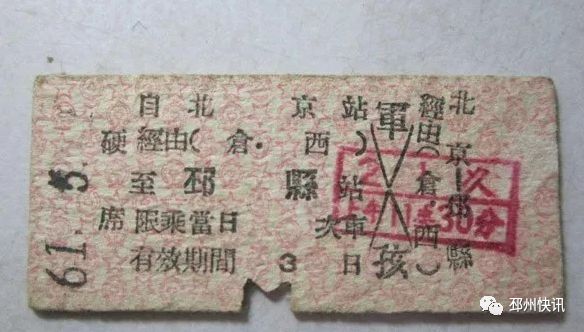 自北京站
硬經由(倉·西)
至邳縣站
席限乘當日 次車
有效期間 3 日
61. 5
軍
孩
經由(倉·西)
北京邳縣
次
30分
邳州快讯